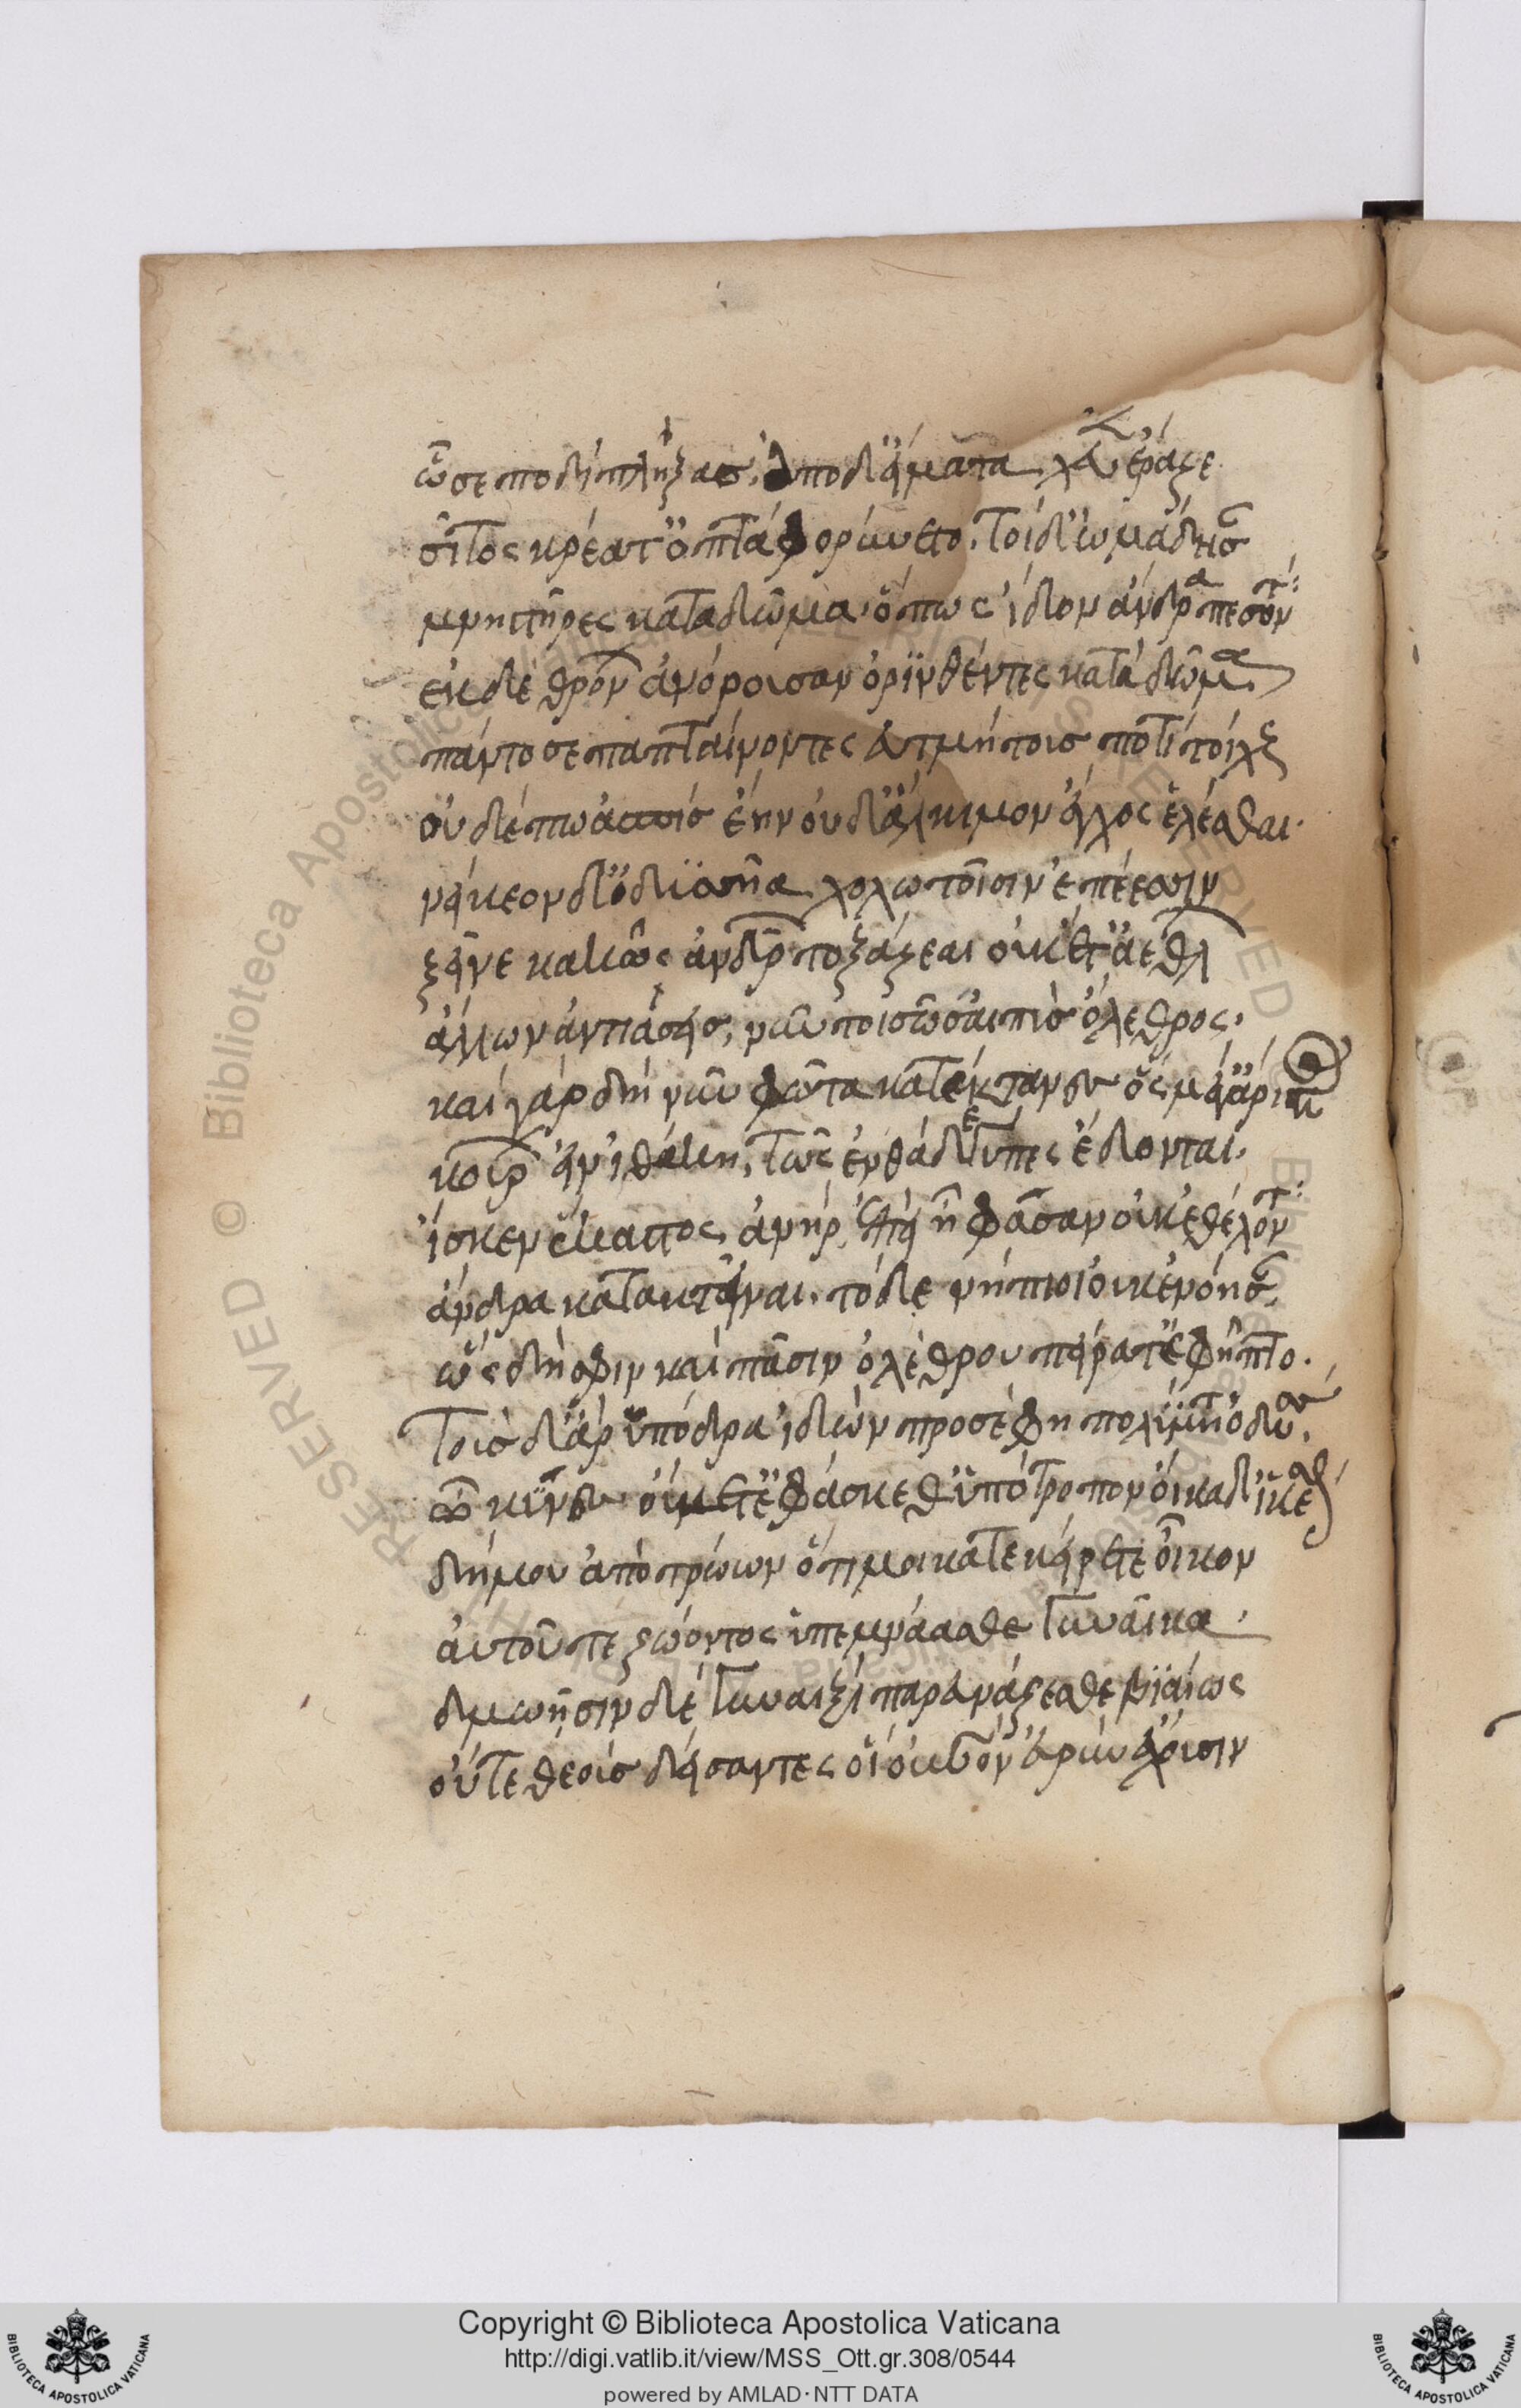 ὦσε ποδὶ πλήξας, ἀπὸ δ' εἵματα χεῦεν ἔραζε
σῖτος κρέατ' ὀπτὰ φορύνετο. τοὶ δ' ὁμάδησαν
μνηστῆρες κατα δῶμα. ὅπως ἴδον ἄνδρα πεσόντα:
ἐκ δὲ θρόνων ἀνόρουσαν ὀρινθέντες κατὰ δῶμα.
πάντοσε παπταίνοντες ἐϋτμήτους ποτὶ τοίχους
οὐδέ πω ἀσπὶς ἔην οὐδ' ἄλκιμον ἔγχος ἑλέσθαι.
νείκεον δ' ὀδυσῆα χολωτοῖσιν ἐπέεσσιν
ξεῖνε κακῶς ἀνδρῶν τοξάζεαι οὐκέτ' ἀέθλων
ἄλλων ἀντιάσεις, νῦν τοι σῶς αἰπὺς ὄλεθρος.
καὶ γὰρ δὴ νῦν φῶτα κατέκτανες ὃς μέγ' ἄριστος
κούρων εἰν ἰθάκη, τῶ σ' ἐνθάδε γῦπες ἔδονται.
ἴσκεν ἕκαστος ἀνὴρ, ἐπειὴ φάσαν οὐκ ἐθέλοντα:
ἄνδρα κατακτεῖναι. τὸ δὲ νήπιοι οὐκ ἐνόησαν,
ὡς δή σφιν καὶ πᾶσιν ὀλέθρου πείρατ' ἐφῆπτο.
Τοὺς δ' ἄρ' ὑπόδρα ἰδὼν προσέφη πολύμητις ὀδυσσεύς.
ὦ κύνες οὔ μ' ἔτ' ἐφάσκεθ' ὑπότροπον οἴκαδ' ἱκέσθαι
δήμου ἀπὸ τρώων ὅτι μοι κατεκείρετε οἶκον
αὐτοῦ τε ζώοντος ὑπεμνάασθε γυναῖκα.
δμωῇσιν δὲ γυναιξὶ παρευνάζεσθε βιαίως
οὔτε θεοὺς δείσαντες οἳ οὐρανὸν εὐρὺν ἔχουσιν
RESERVED © Biblioteca Apostolica
Copyright © Biblioteca Apostolica Vaticana
http://digi.vatlib.it/view/MSS_Ott.gr.308/0544
powered by AMLAD·NTT DATA
BIBLIOTECA APOSTOLICA VATICANA
BIBLIOTECA APOSTOLICA VATICANA